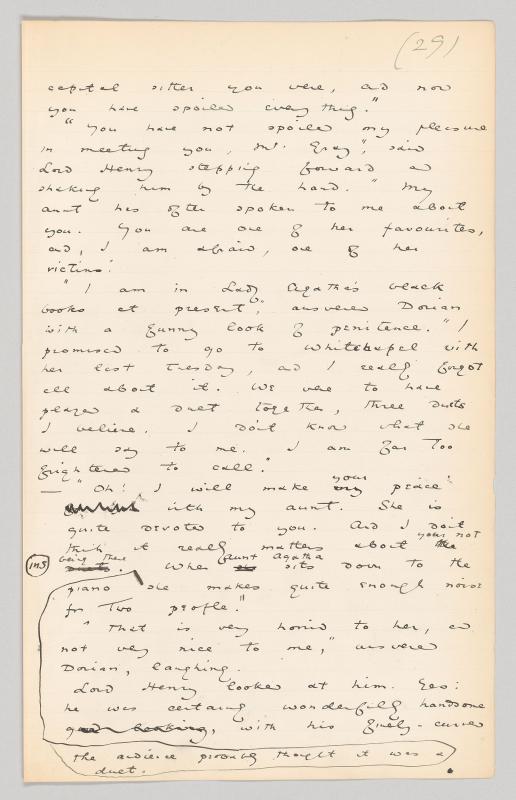 (29)
capital sitter you were, and now
you have spoiled everything."
"You have not spoiled my pleasure
in meeting you, Mr. Gray", said
Lord Henry stepping forward and
shaking him by the hand. "My
aunt has often spoken to me about
you. You are one of her favourites,
and, I am afraid, one of her
victims."
"I am in Lady Agatha's black
books at present," answered Dorian
with a funny look of penitence. "I
promised to go to Whitechapel with
her last Tuesday, and I really forgot
all about it. We were to have
played a duet together, three duets
I believe. I don't know what she
will say to me. I am far too
frightened to call."
your
— "Oh! I will make my peace
with my aunt. She is
quite devoted to you. And I don't
your not
think it really matters about the
being there aunt Agatha
ins duet. When she sits down to the
piano she makes quite enough noise
for two people."
"That is very horrid to her, and
not very nice to me," answered
Dorian, laughing.
Lord Henry looked at him. Yes:
he was certainly wonderfully handsome
good looking, with his finely-curved
the audience probably thought it was a
duet.